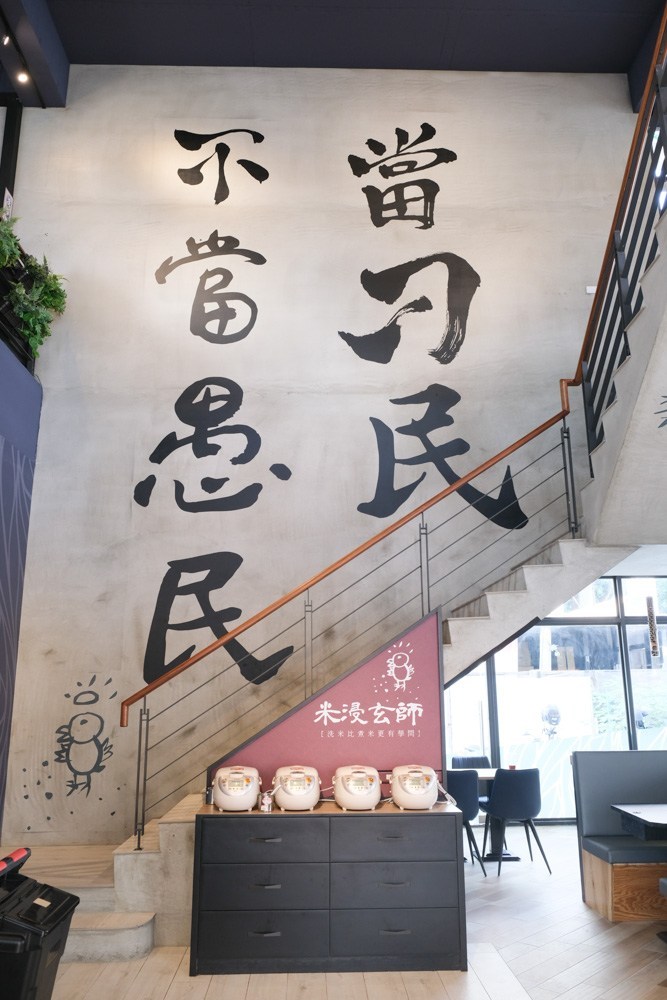 當刁民
不當愚民
米漫玄師
[洗米比煮米更有學問]